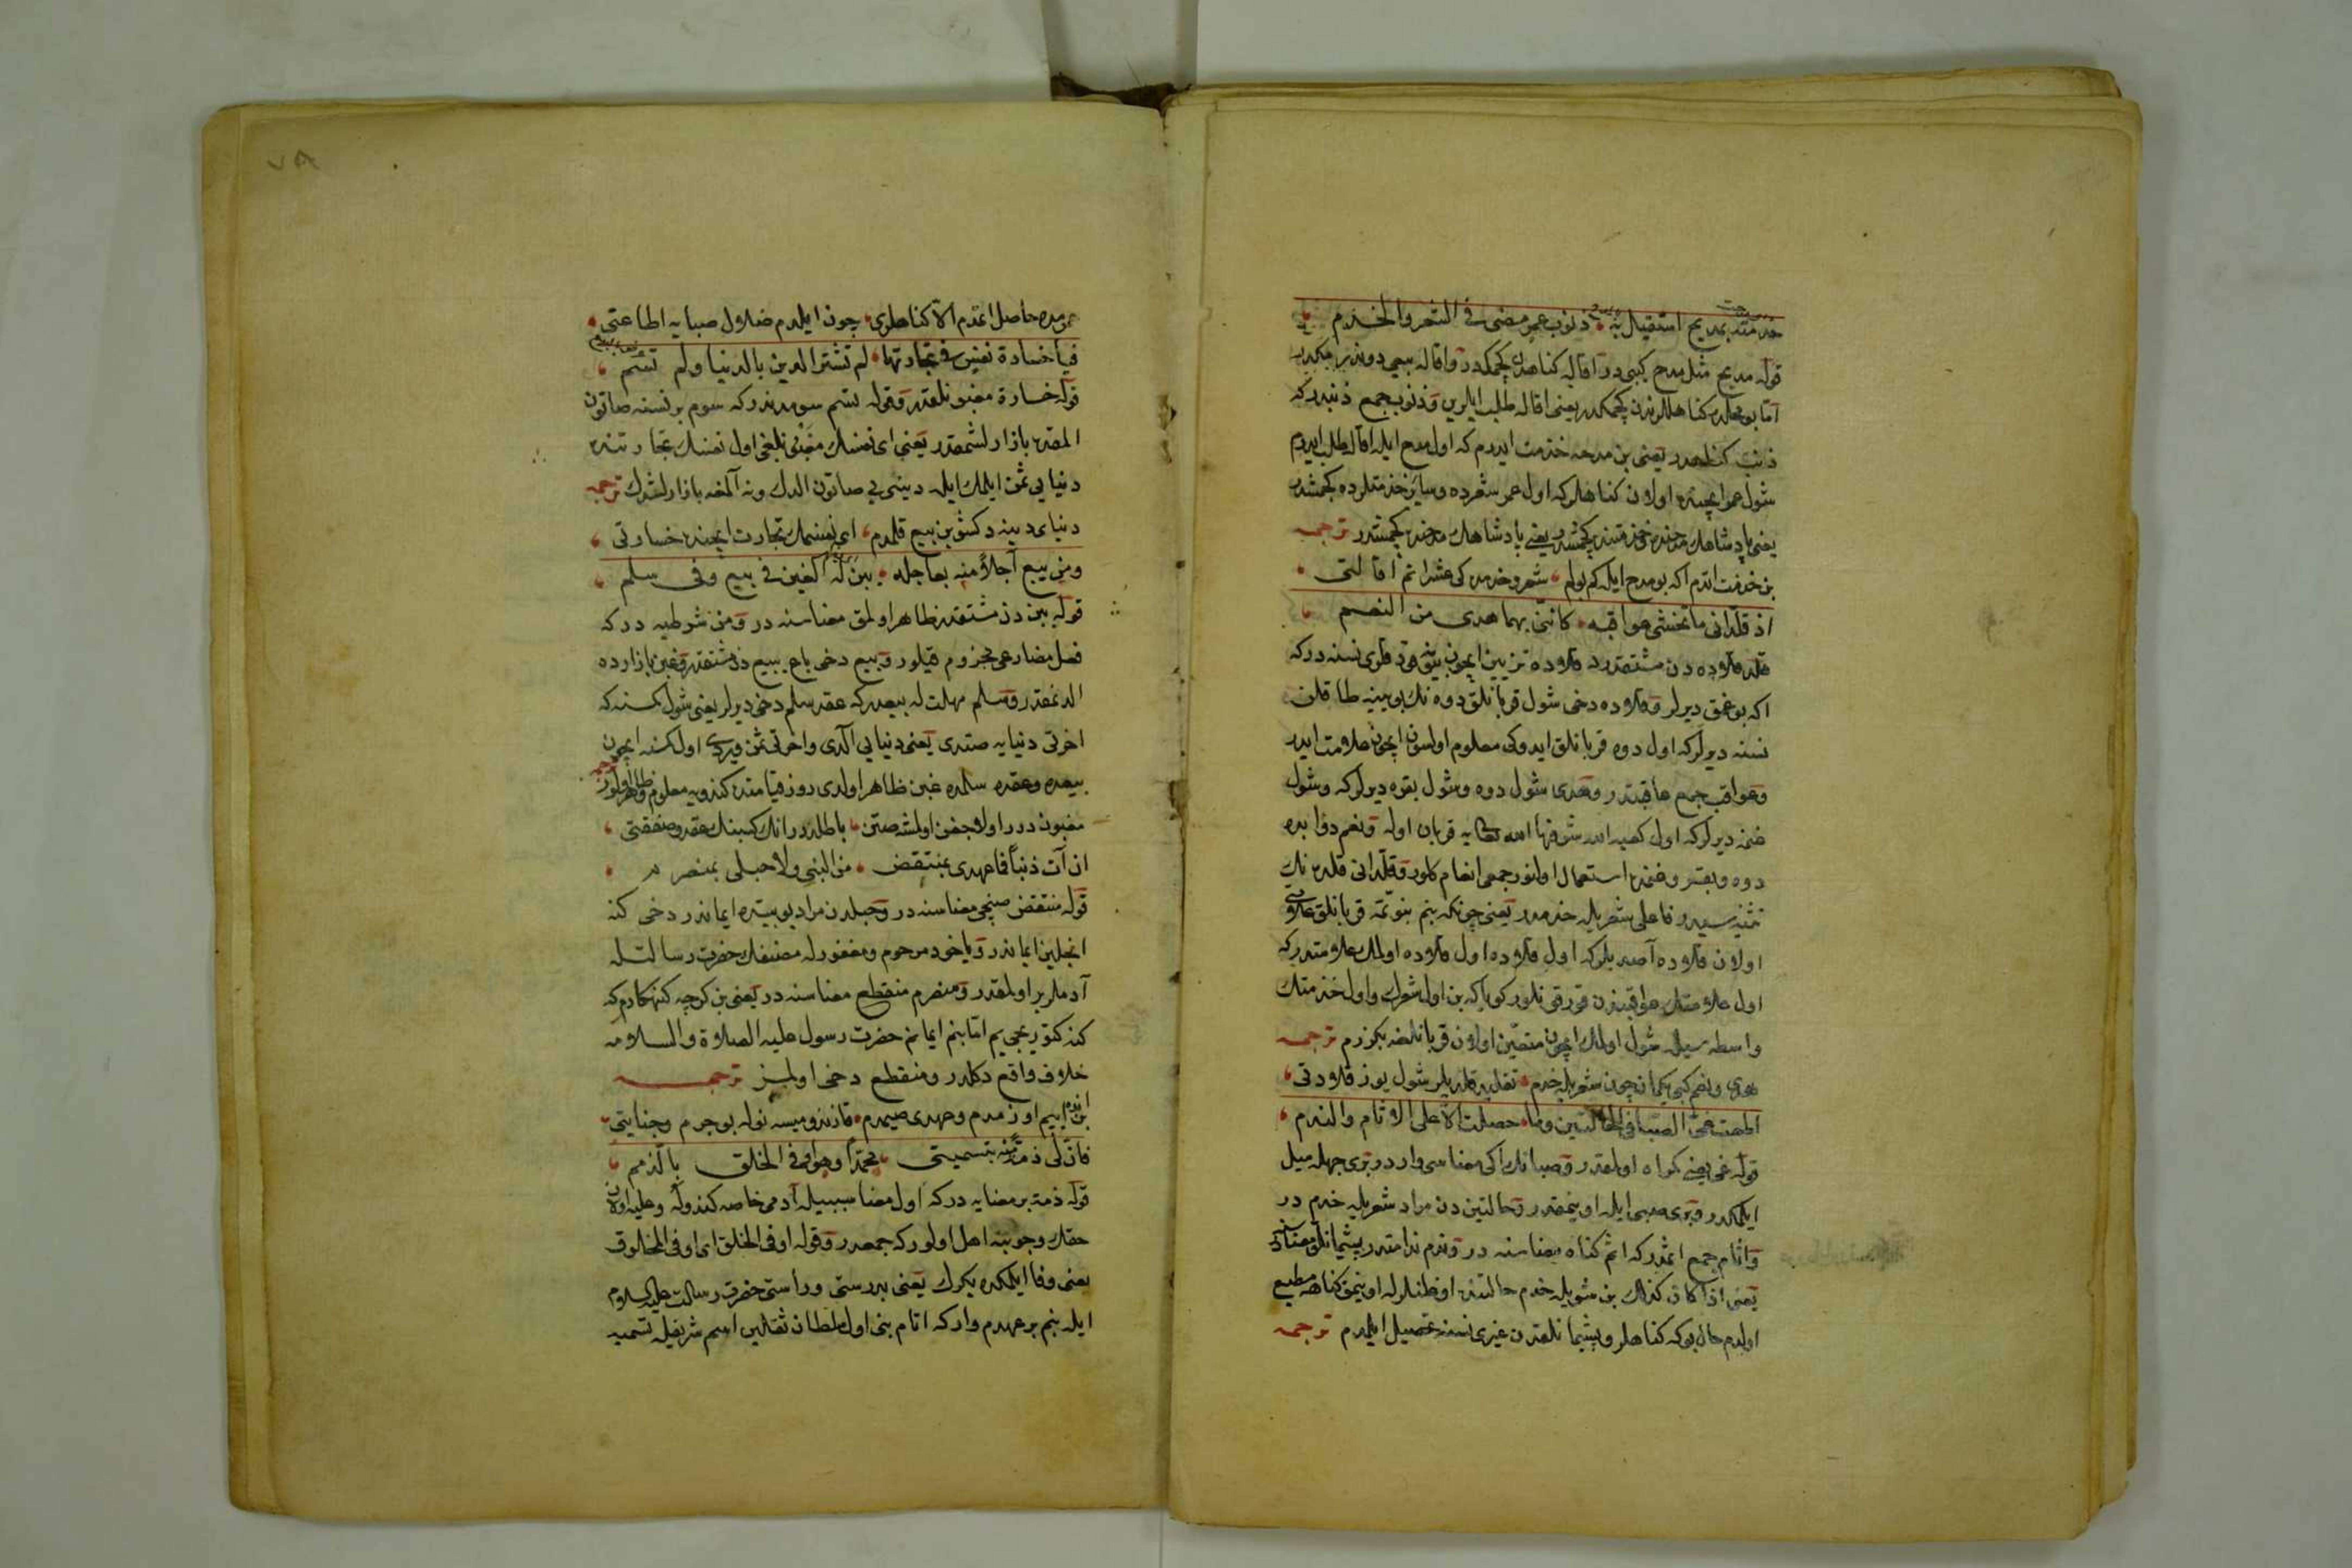 خدمته بمديح استقيل به ذنوب عمر مضى فى الشعر والخدم
قوله مديح مثل مدح كبى در اقاله كناهدن كچمكدر واقاله بيعى دوندرمكدر
امّا بو محلده كناهلرندن كچمكدر يعنى اقاله طلب ايلرين وذنوب جمع ذنبدر كه
ذنب كناهدر يعنى بن مدحه خدمت ايدرم كه اول مدح ايله اقاله طلب ايدرم
شول عمر ايچنده اولان كناهلر كه اول عمر شعرده وساير خدمتلرده كچمشدر
يعنى پادشاهلر مدحنده وخدمتنده كچمشدر يعنى پادشاهلر مدحنده كچمشدر ترجمه
بن خدمت اتدم اكه بو مدح ايله كم بولم شعر وخدمده كى عثراتم اقالتى
اذ قلّدانى ما تخشى عواقبه كاننى بهما هدى من النعم
قلد قلاوده دن مشتقدر قلاوده تزيين ايچون بوينه قودقلرى نسنه در كه
اكه بوغمق ديرلر وقلاوده دخى شول قربانلق دوه نك بوينه طاقلن
نسنه ديرلر كه اول دوه قربانلق ايدوكى معلوم اولسون ايچون علامت ايدر
وعواقب جمع عاقبتدر وهدى شول دوه وشول بقره ديرلر كه وشول
غنمه ديرلر كه اول كعبه الله شرفها الله تعالى يه قربان اوله ونعم دوابده
دوه وبقر وغنمده استعمال اولنور جمعى انعام كلور وقلّدانى قلده نك
تثنيه سيدر وفاعلى شعر ايله خدمدر يعنى چونكه بنم بنومه قربانلق علامتى
اولان قلاوده آصديلر كه اول قلاوده اول قلاوده اولمك علامتدر كه
اول علامتك عواقبندن قورقىنلور كويا كه بن اول شعرك واول خدمتك
واسطه سيله شول اولمك ايچون متعيّن اولان قربانلغه بكزرم ترجمه
هدى ونعم كبى يكمان چون شعر ايله خدم تقليد قلديلر شول يوز قلاودتى
اطعت غىّ الصبا فى الحالتين وما حصلت الاّ على الاثام والندم
قوله غى يعنى كمراه اولمقدر وصبانك اكى معناسى واردر برى جهله ميل
ايلمكدر وبرى صبى ايله اوينمقدر وحالتين دن مراد شعر ايله خدم در
وآثام جمع اثمدر كه اثم كناه معناسنه در وندم ندامتدر پشيمانلق معناسنه
يعنى اذا كان كذلك بن شعر ايله خدم حالتنده اوغلنلرله اوينمق كناهنه مطيع
اولدم حال بو كه كناهلر وپشيمانلقدن غيرى نسنه تحصيل ايلمدم ترجمه
عمرمده حاصل اتمدم الاّ كناهلرى چون ايلدم ضلال صبايه اطاعتى
فيا خسارة نفس فى تجارتها لم تشتر الدين بالدنيا ولم تسم
قوله خسارة مغبونلقدر وقوله تسم سومدندر كه سوم بر نسنه صاتون
المقده بازارلشمقدر يعنى اى نفسك مغبونلغى اول نفسك تجارتنده
دنيايى ثمن ايلمك ايله دينى صاتون المدك ونه آلمغه بازارلشدك ترجمه
دنياى دينه دكشوبن بيع قلمدم اى نفسمك تجارت ايچنده خسارتى
ومن يبع آجلاً منه بعاجله يبن له الغبن فى بيع وفى سلم
قوله يبن دن مشتقدر ظاهر اولمق معناسنه در ومن شرطيه در كه
فعل مضارعى مجزوم قيلور وبيع دخى باع يبيع دن مشتقدر وغبن بازارده
الدنمقدر وسلم مهلت له بيعدر كه عقد سلم دخى ديرلر يعنى شول كمسنه كه
اخرتى دنيايه صتدى يعنى دنيايى آلدى واخرتى ثمن ويردى اول كمسنه ايچون
بيعده وعقده سلمده غبن ظاهر اولدى روز قيامتده كندويه معلوم وظاهر اولور
مغبون درر اولاجغن اولشه صتن باطلدر انك كسبنك عقد وصفقتى
ان آت ذنباً فما عهدى بمنتقض من النبى ولا حبلى بمنصرم
قوله منتقض صنجى معناسنه در وحبلدن مراد بو بيتده ايماندر دخى كنه
انجلين ايماندر ويا خود مرحوم ومغفور له مصنفك حضرت رسالتله
آدملر بر اولمقدر ومنصرم منقطع معناسنه در يعنى بن كرچه كنهكارم كه
كنه كتوريجى يم امّا بنم ايمانم حضرت رسول عليه الصلاة والسلامه
خلاف واقع دكلدر ومنقطع دخى اولمز ترجمه
بن ايپم اوزمدم وعهدى صيمدم قازندوميسه نوله بو جرم وجنايتى
فانّ لى ذمّة منه بتسميتى محمداً وهو اوفى الخلق بالذمم
قوله ذمة بر معنايه در كه اول معنا سببيله آدمى خاصه كندوله وعليه اولان
حقك وجوبنه اهل اولور كه جمعدر وقوله اوفى الخلق اى اوفى المخلوق
يعنى وفا ايلمكده يكرك يعنى بدرستى وراستى حضرت رسالت عليه السلام
ايله بنم بر عهدم وار كه اتام بنى اول سلطان ثقلين اسم شريفله تسميه